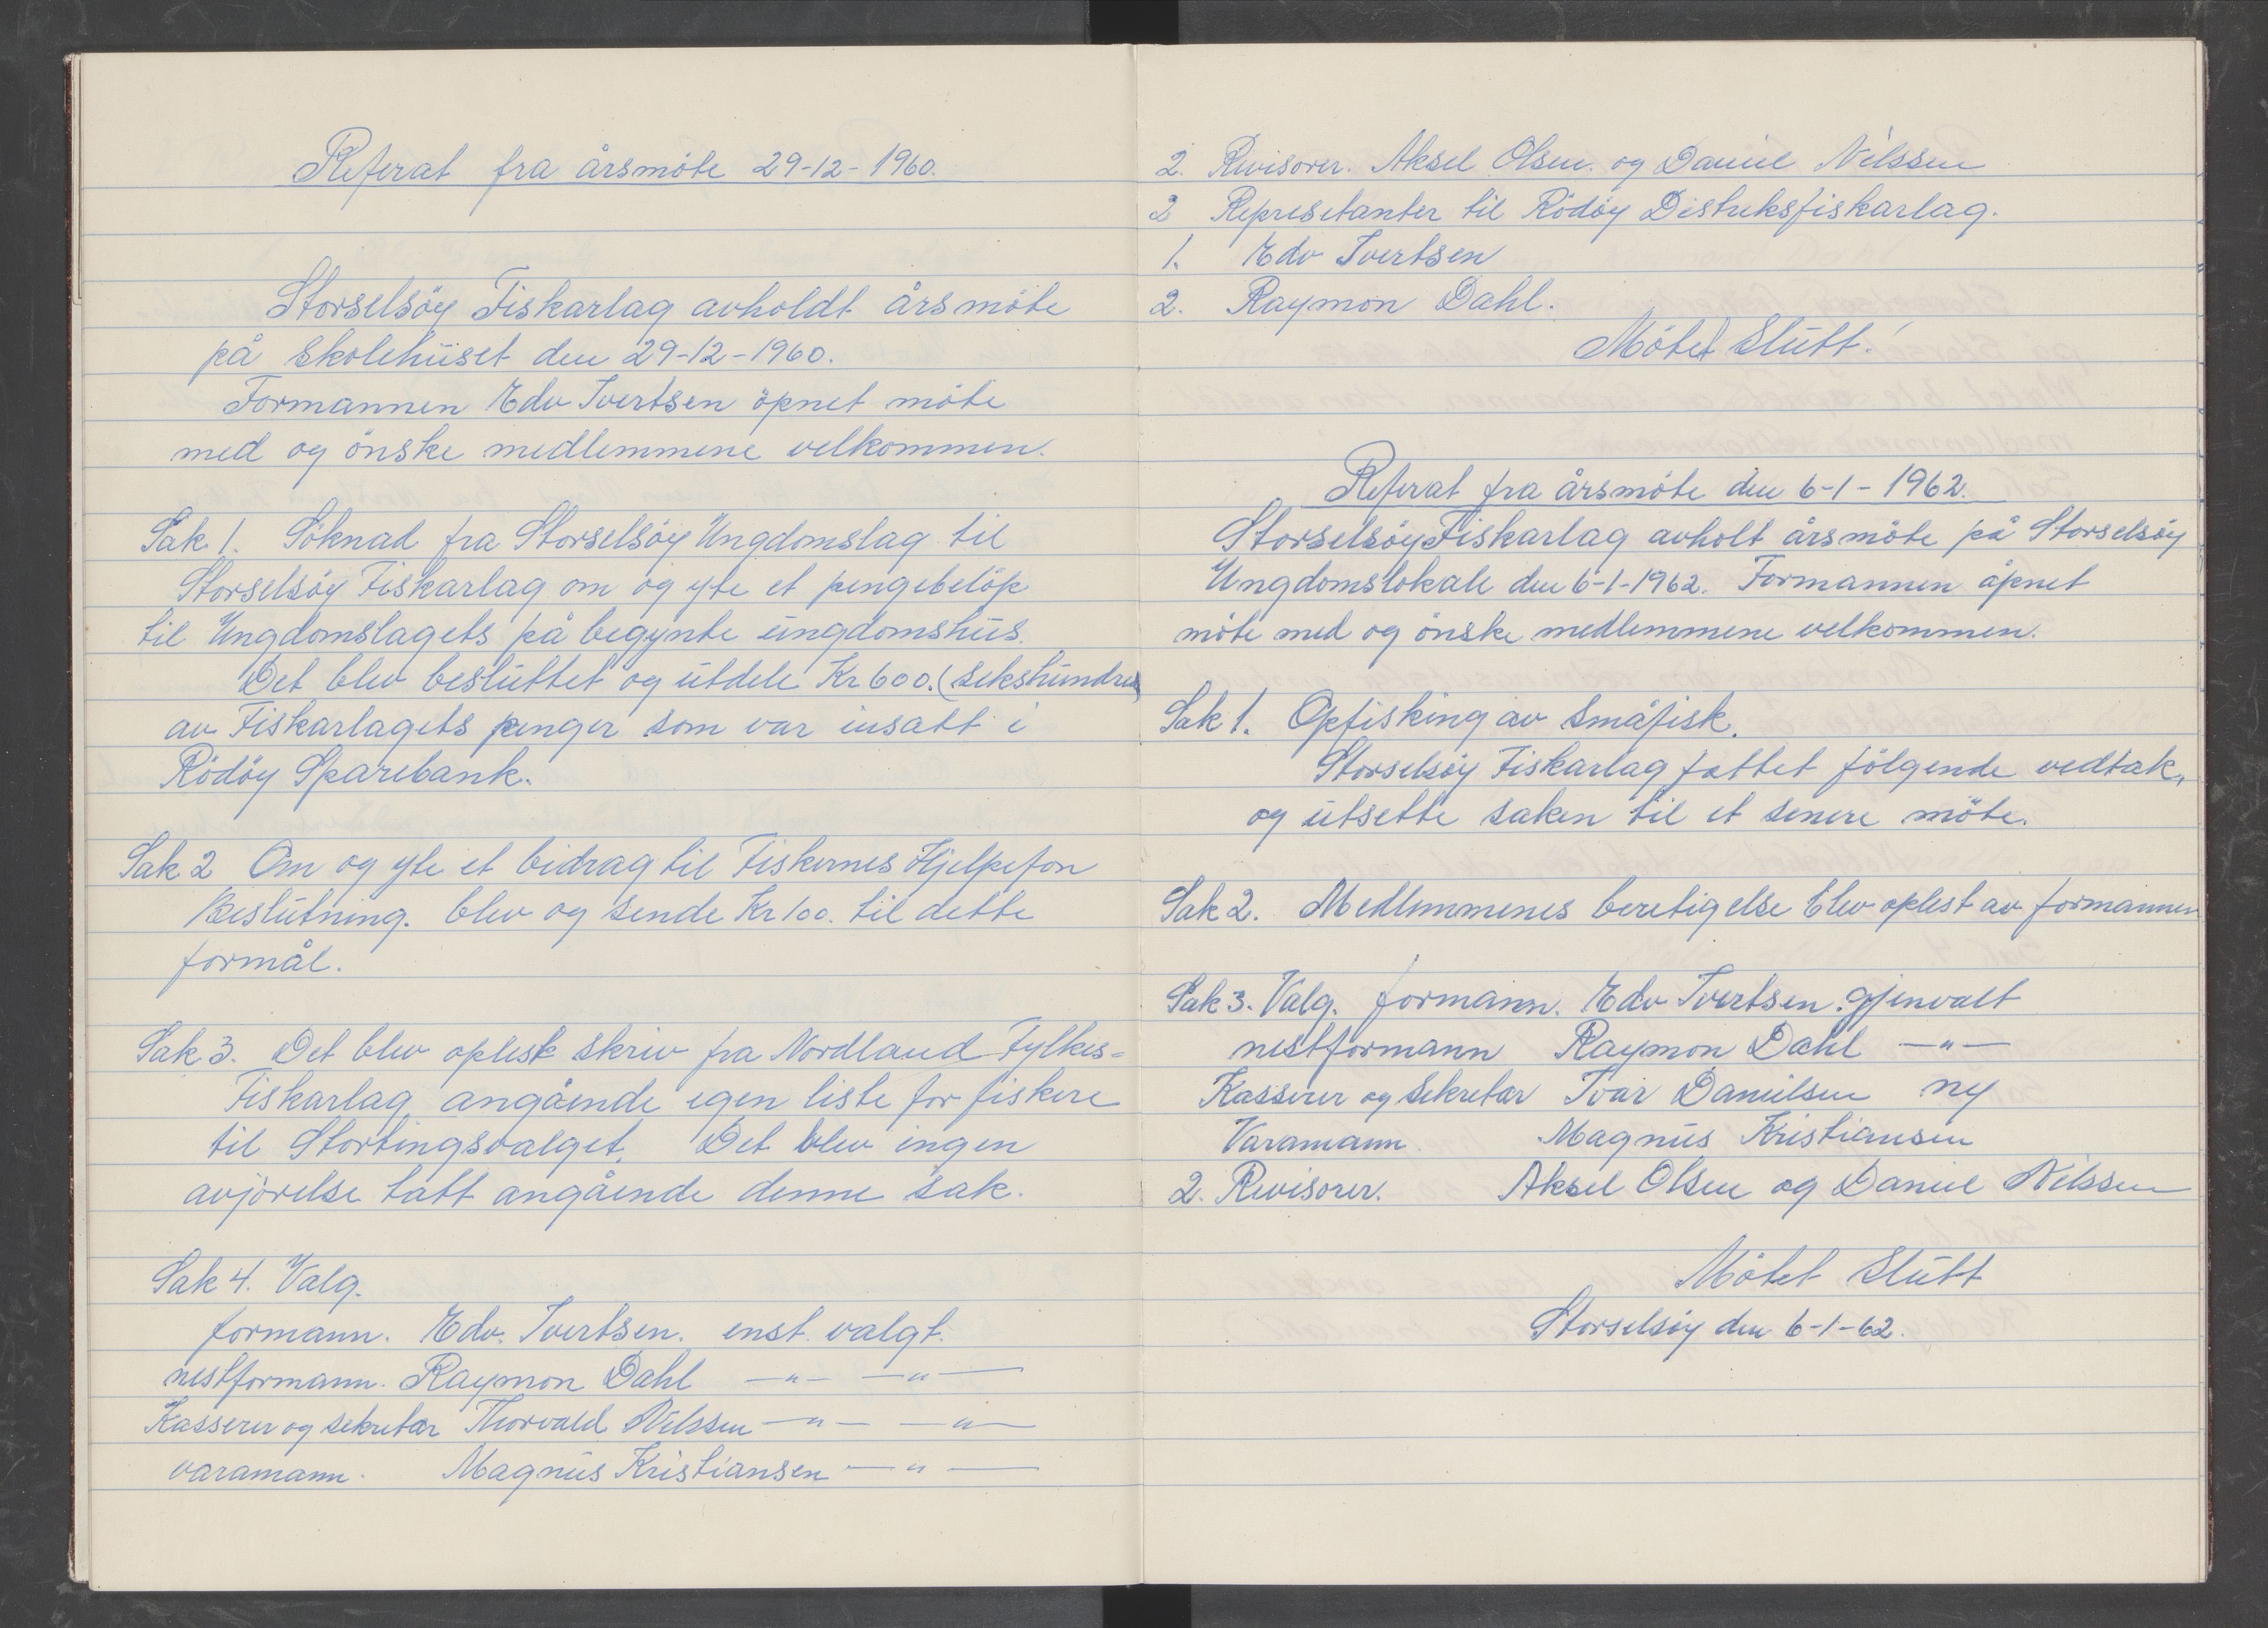 Referat fra årsmöte 29-12-1960.
Storselsöy Fiskarlag avholdt årsmöte
på Skolehuset den 29-12-1960.
Formannen Edv Ivertsen öpnet möte
med og önske medlemmene velkommen.
Sak. 1. Söknad fra Storselsöy Ungdomslag til
Storselsöy Fiskarlag om og yte et pengebelöp
til Ungdomslagets på begynte ungdomshus.
Det blev besluttet og utdele Kr 600. (sekshundre)
av Fiskarlagets penger som var insatt i
Rödöy Sparebank.
Sak 2 Om og yte et bidrag til Fiskernes Hjelpefon
Beslutning. blev og sende Kr 100. til dette
formål.
Sak 3. Det blev oplesk skriv fra Nordland Fylkes=
Fiskarlag angående egen liste for fiskere
til Stortingsvalget. Det blev ingen
avjörelse tatt angående denne sak.
Sak 4. Valg.
formann. Edv. Ivertsen. enst. valgt.
nestformann. Raymon Dahl —"— —"—
Kasserer og sekretar Thorvald Nilssen —"— —"—
varamann. Magnus Kristiansen —"—
2. Revisorer. Aksel Olsen. og Daniel Nilssen
2 Represetanter til Rödöy Distriksfiskarlag.
1. Edv Ivertsen
2. Raymon Dahl.
Mötet Slutt!
Referat fra årsmöte den 6-1-1962.
Storselsöy Fiskarlag avholt årsmöte på Storselsöy
Ungdomslokale den 6-1-1962. Formannen åpnet
möte med og önske medlemmene velkommen.
Sak 1. Opfisking av småfisk.
Storselsöy Fiskarlag fattet fölgende vedtak,
og utsette saken til et senere möte.
Sak 2. Medlemmenes beretigelse blev oplest av formannen
Sak 3. Valg. formann. Edv Ivertsen. gjenvalt
nestformann Raymon Dahl —"—
Kasserer og sekretar Ivar Danielsen ny
Varamann Magnus Kristiansen
2. Revisorer. Aksel Olsen og Daniel Nilssen
Mötet Slutt
Storselsöy den 6-1-62.